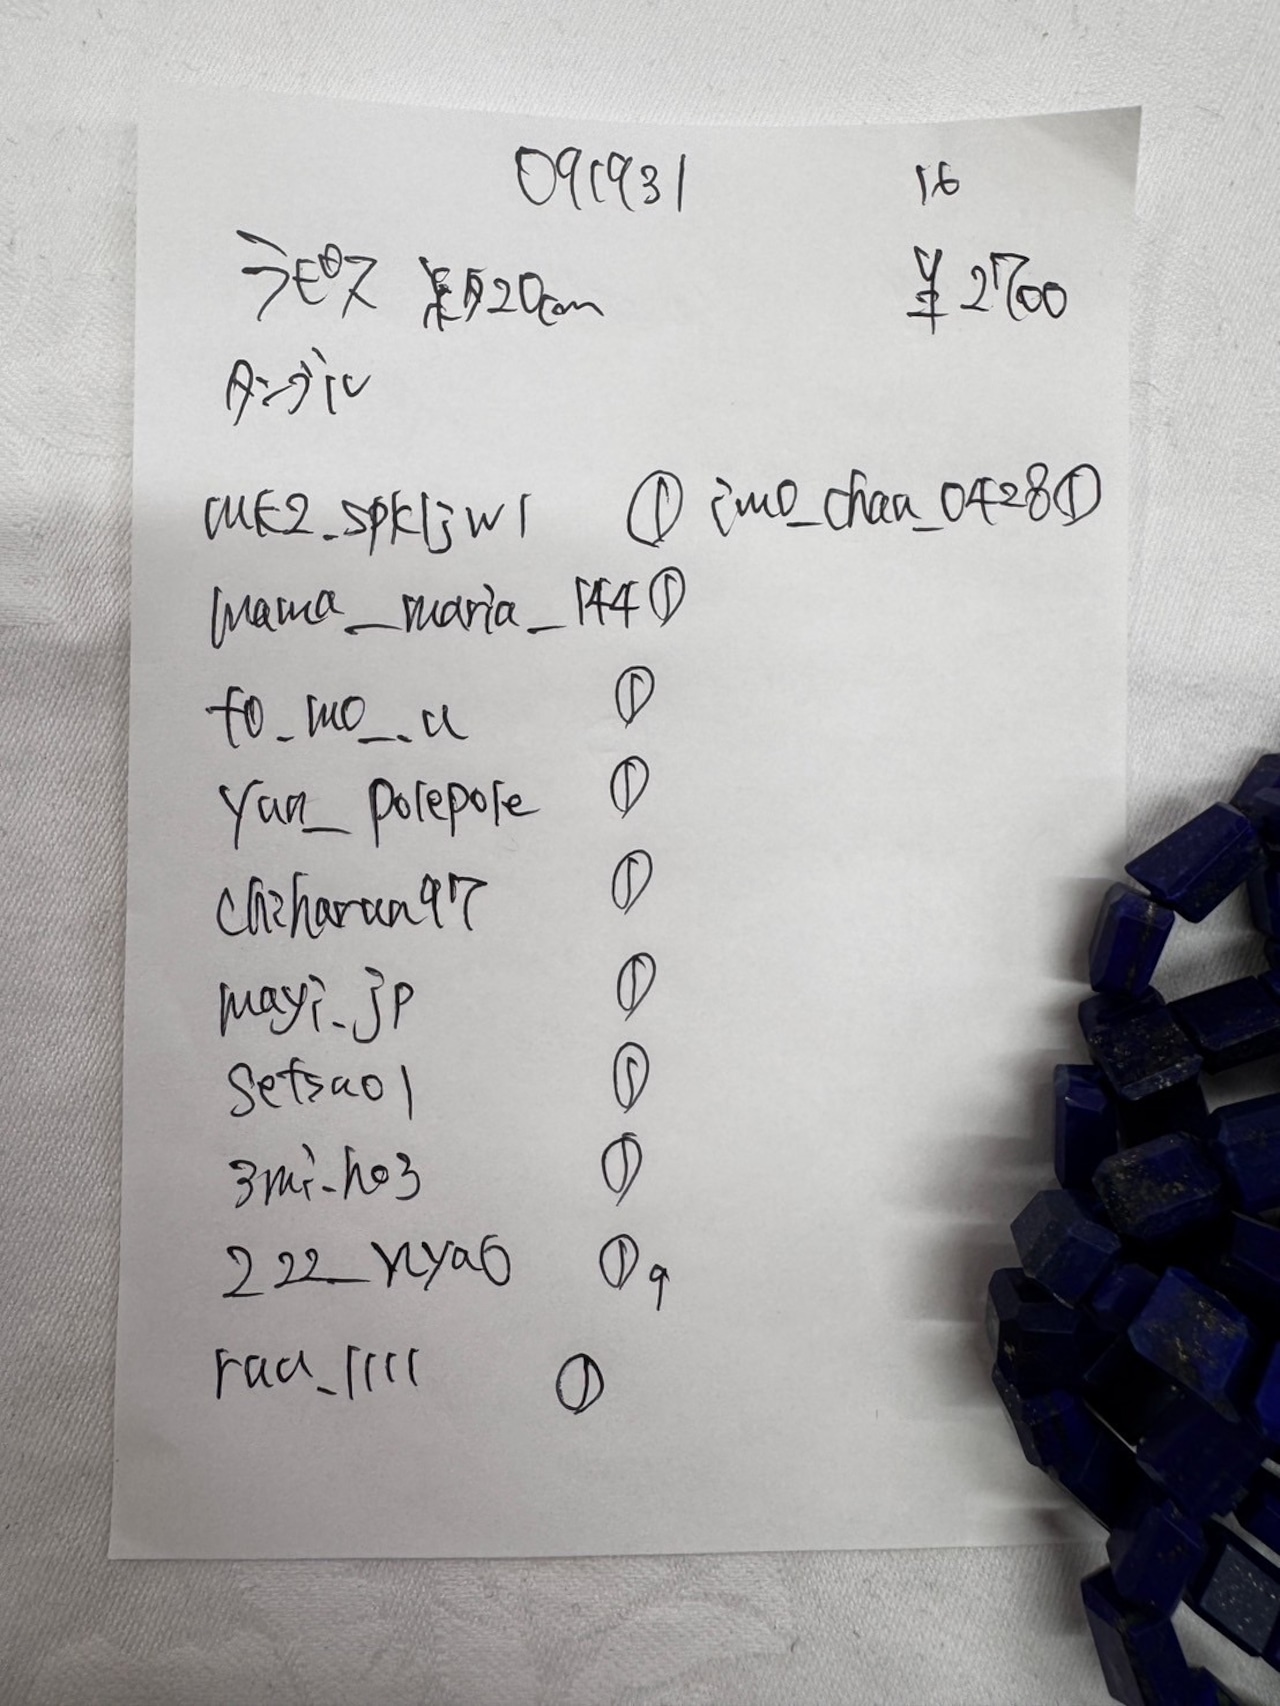 091931 16
ラピス 約20cm ¥2700
タンブル
mk2_spkljw1 ① imo_chan_0428①
mama_maria_144①
to_mo_.u ①
yun_polepole ①
chiharun97 ①
mayi_jp ①
setsao1 ①
3mi_ho3 ①
222_nya6 ① 9
rau_1111 ①